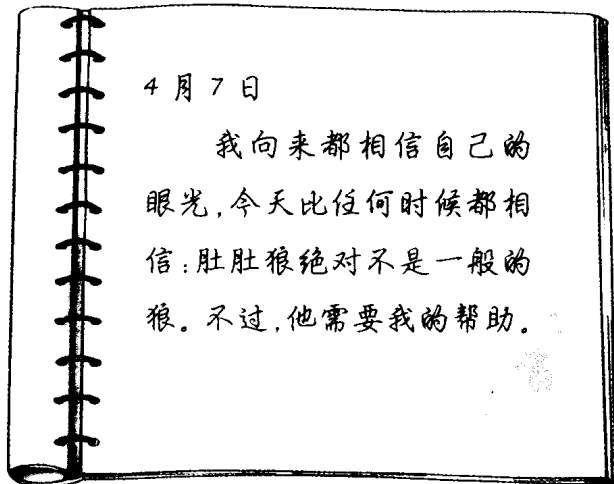 4月7日
我向来都相信自己的
眼光,今天比任何时候都相
信:肚肚狼绝对不是一般的
狼。不过,他需要我的帮助。